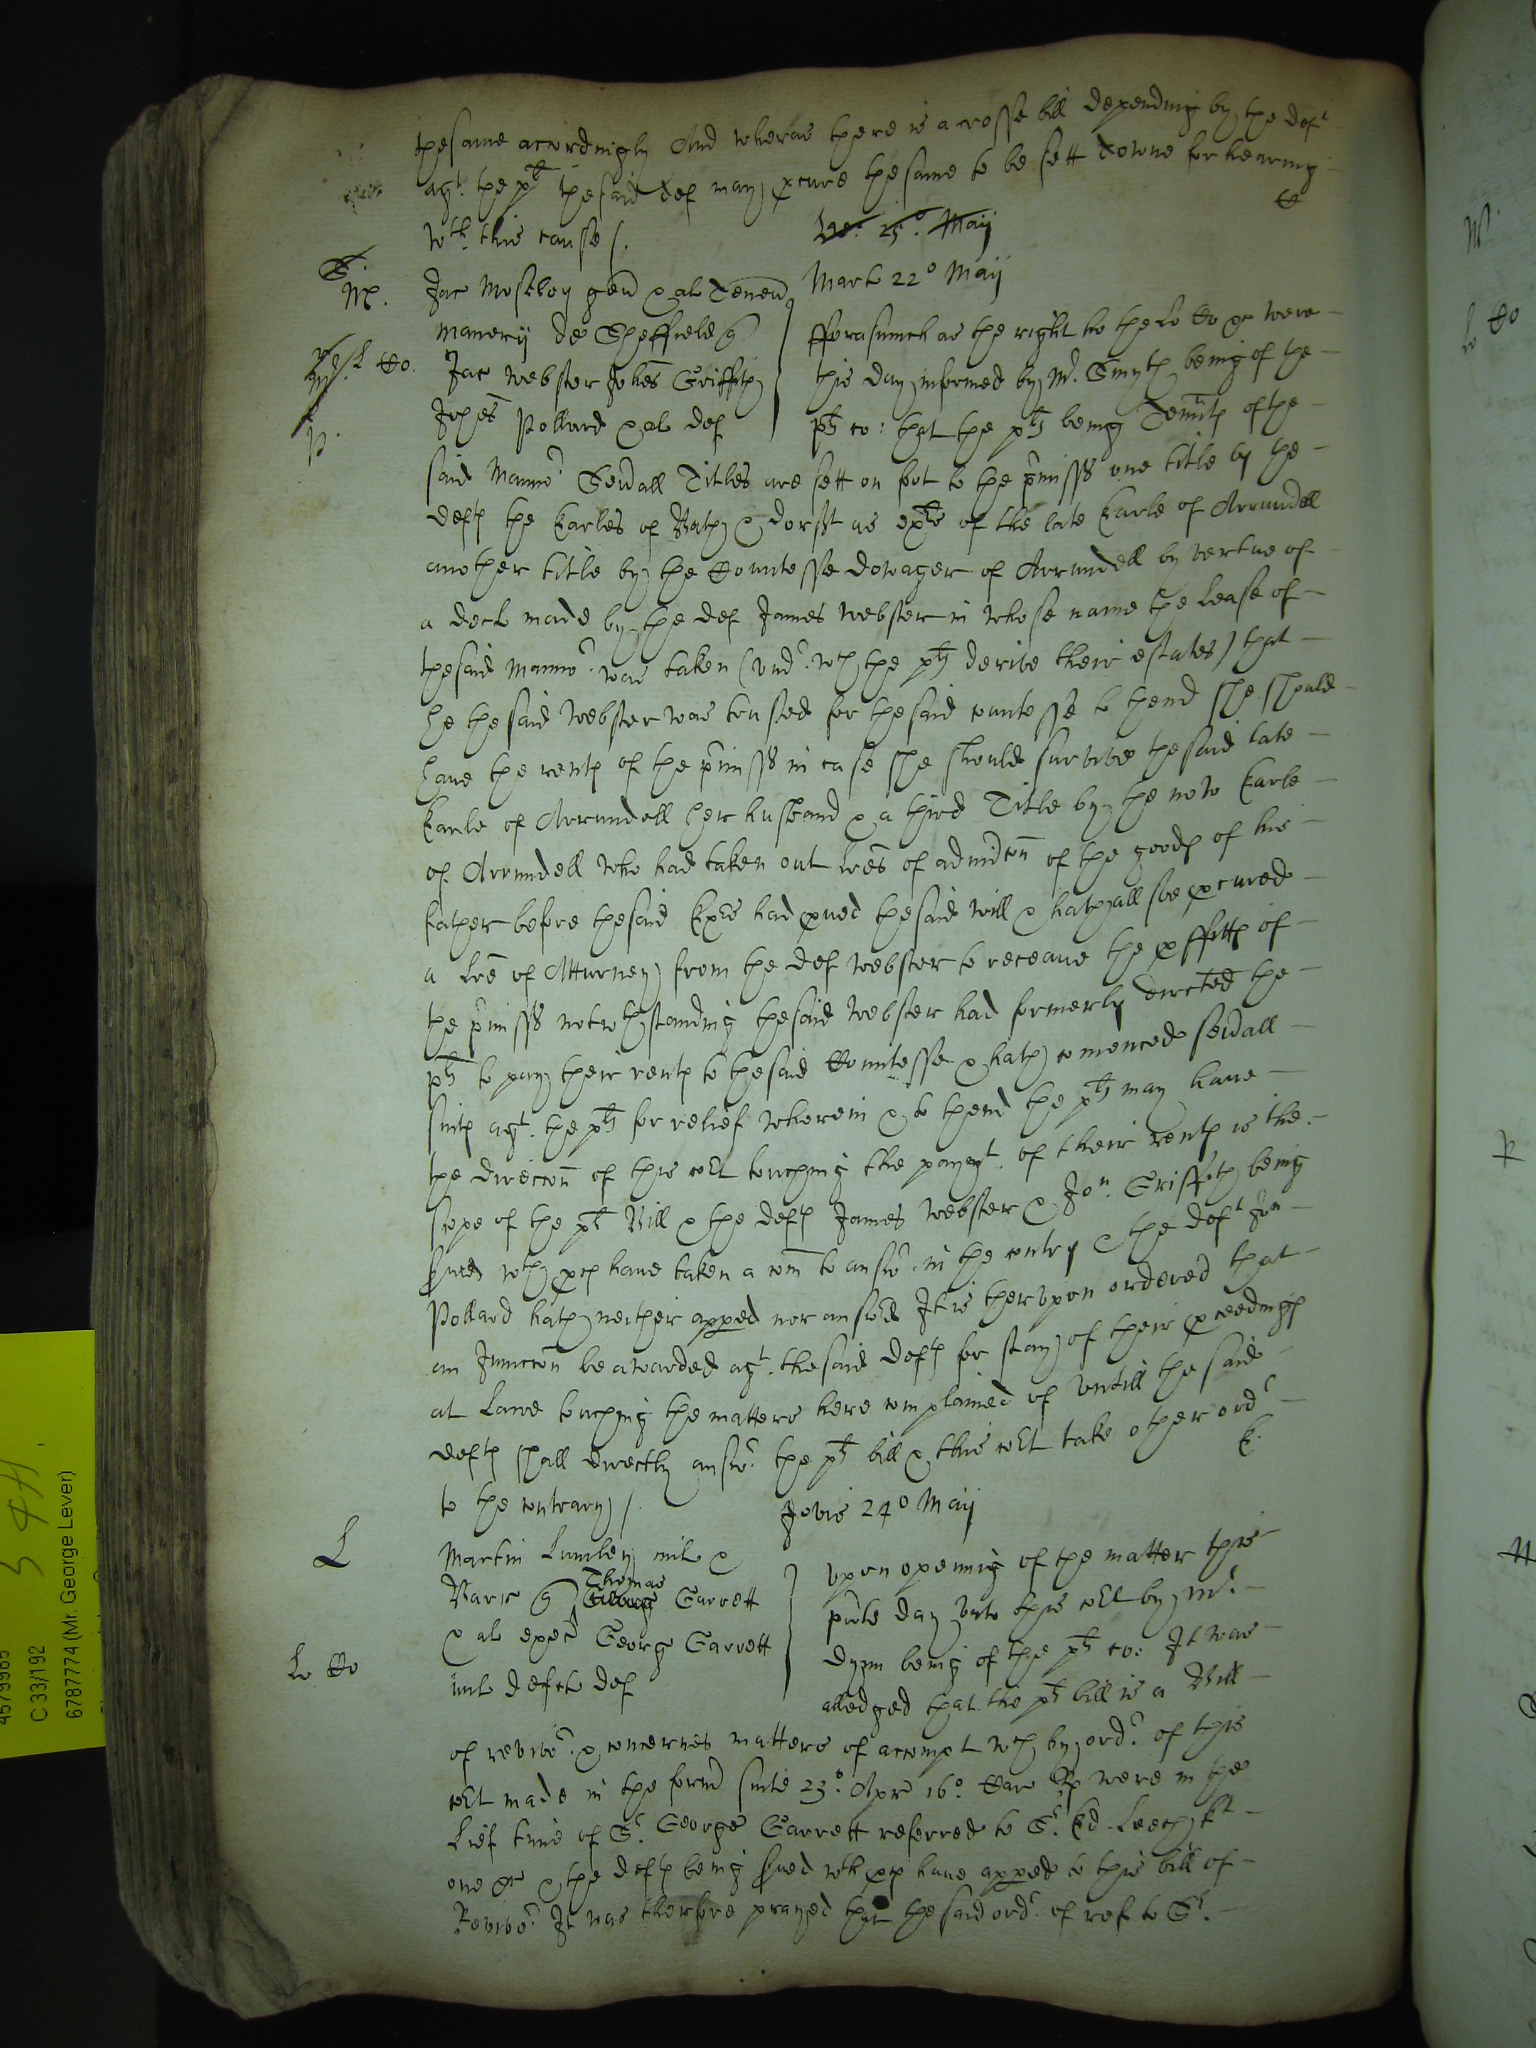 thesame accordingly And wheras there is a crosse bill depending by the deft
agt. the plt thesaid def may pcure thesame to be sett downe for hearing
wth. this cause /.
Ve: 25o. Maij
Mart 22o Maij
Jac Moseley gen & al Tenen
manerij de Sheffield q
Jac Webster Johes Griffith
Johes Pollard & al def
fforasmuch as the right ho the Lo Co &c were
this day informed by Mr. Smyth being of the
plts co: that the plts being Tennts of the
said Mannor Seuall Titles are sett on foot to the pmisss one title by the
defts the Earles of Bath & Dorsst as exrs of the late Earle of Arrundell
another title by the Countesse dowager of Arrundell by vertue of
a decl made by the def James Webster in whose name the Lease of
thesaid Mannor. was taken (vndr. wch the plts derive their estates) that
he thesaid Webster was trusted for thesaid countesse to thend she should
haue the rents of the pmisss in case she should survive thesaid late
Earle of Arrundell her husband & a third Title by the now Earle
of Arrundell who had taken out lres of admicon of the goods of his
father before thesaid Exrs had pued thesaid will & hath allsoe pcured
a lre of Atturney from the def Webster to receaue the pffitts of
the pmisss notwthstanding thesaid Webster had formerly directed the
plts to pay their rents to thesaid Countesse & hath comenced seuall
suits agt. the plts for relief wherein & to thend the plts may haue
the direccon of this cort touching the paymt. of their rents is the
scope of the plts Bill & the defts James Webster & Jon. Griffith being
sued wth pces haue taken a com to answr. in the contry & the deft Jon
Pollard hath neither apped nor answed It is thervpon ordered that
an Iniuccon be awarded agt. thesaid defts for stay of their pceedings
at Lawe touching the matters here complained of vntill the said
defts shall directly answr. the plts bill & this cort take other ordr
to the contrary /.
E.
Jovis 24o Maij
L
Martin Lumley mil &
Barr q Thomas George Garrett
& al exec George Garrett
Lo Co
mil defct def
vpon opening of the matter this
pnte day vnto this cort by Mr.
being of the plts co: It was
alledged that the plts bill is a Bill
of revivor. & concernes matters of accompt wch by ordr. of this
cort made in the form suite 23o. Apr 16o. Car Rs were in the
lief time of Sr. George Garrett referred to Sr. Ed. Leech kt
one &c & the defts being sued wth pces haue apped to this bill of
Revivor. It was therfore prayed that thesaid ordr. of ref to Sr.
4579985
C 33/192
6787774 (Mr. George Lever)